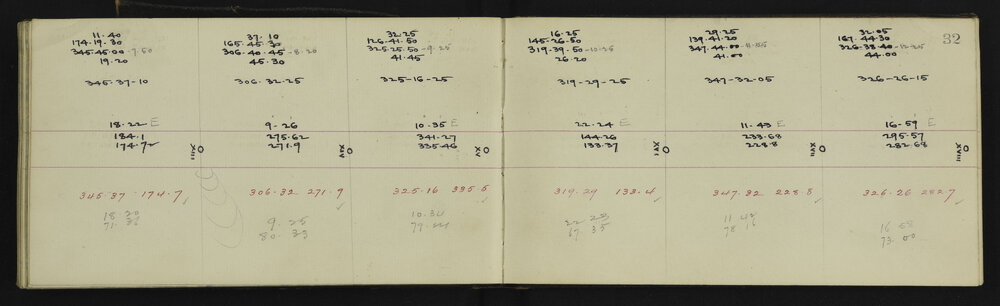 11.40
174.19.30
345.45.00 -7.50
19.20
345.37-10
18.22 E
184.1
174.72
XIII O
345.37 174.7 ✓
18 20
37.10
165.45.30
306.40.45 -8.20
45.30
306.32.25
9.26
275.62
271.9
XIV O
306.32 271.9 ✓
9.25
80.33
32.25
126.41.50
325.25.50 -9.25
41.45
325-16-25
10.35 E
341.27
335.46
XV O
325.16 335.5 ✓
10.34
16.25
145.26.50
319.39.50 -10.25
26.20
319-29-25
22.24 E
144.26
133.37
XVI O
319.29 133.4 ✓
22 23
67.35
29.25
139.41.20
347.44.00
44.00
347-32.05
11.43 E
233.68
228.8
XVII O
347.32 228.8 ✓
11 42
32
32.05
167.44.30
326.38.40 -12.25
44.00
326-26-15
16-59 E
295.57
282.68
XVIII O
326.26 282.7 ✓
16 58
73.00